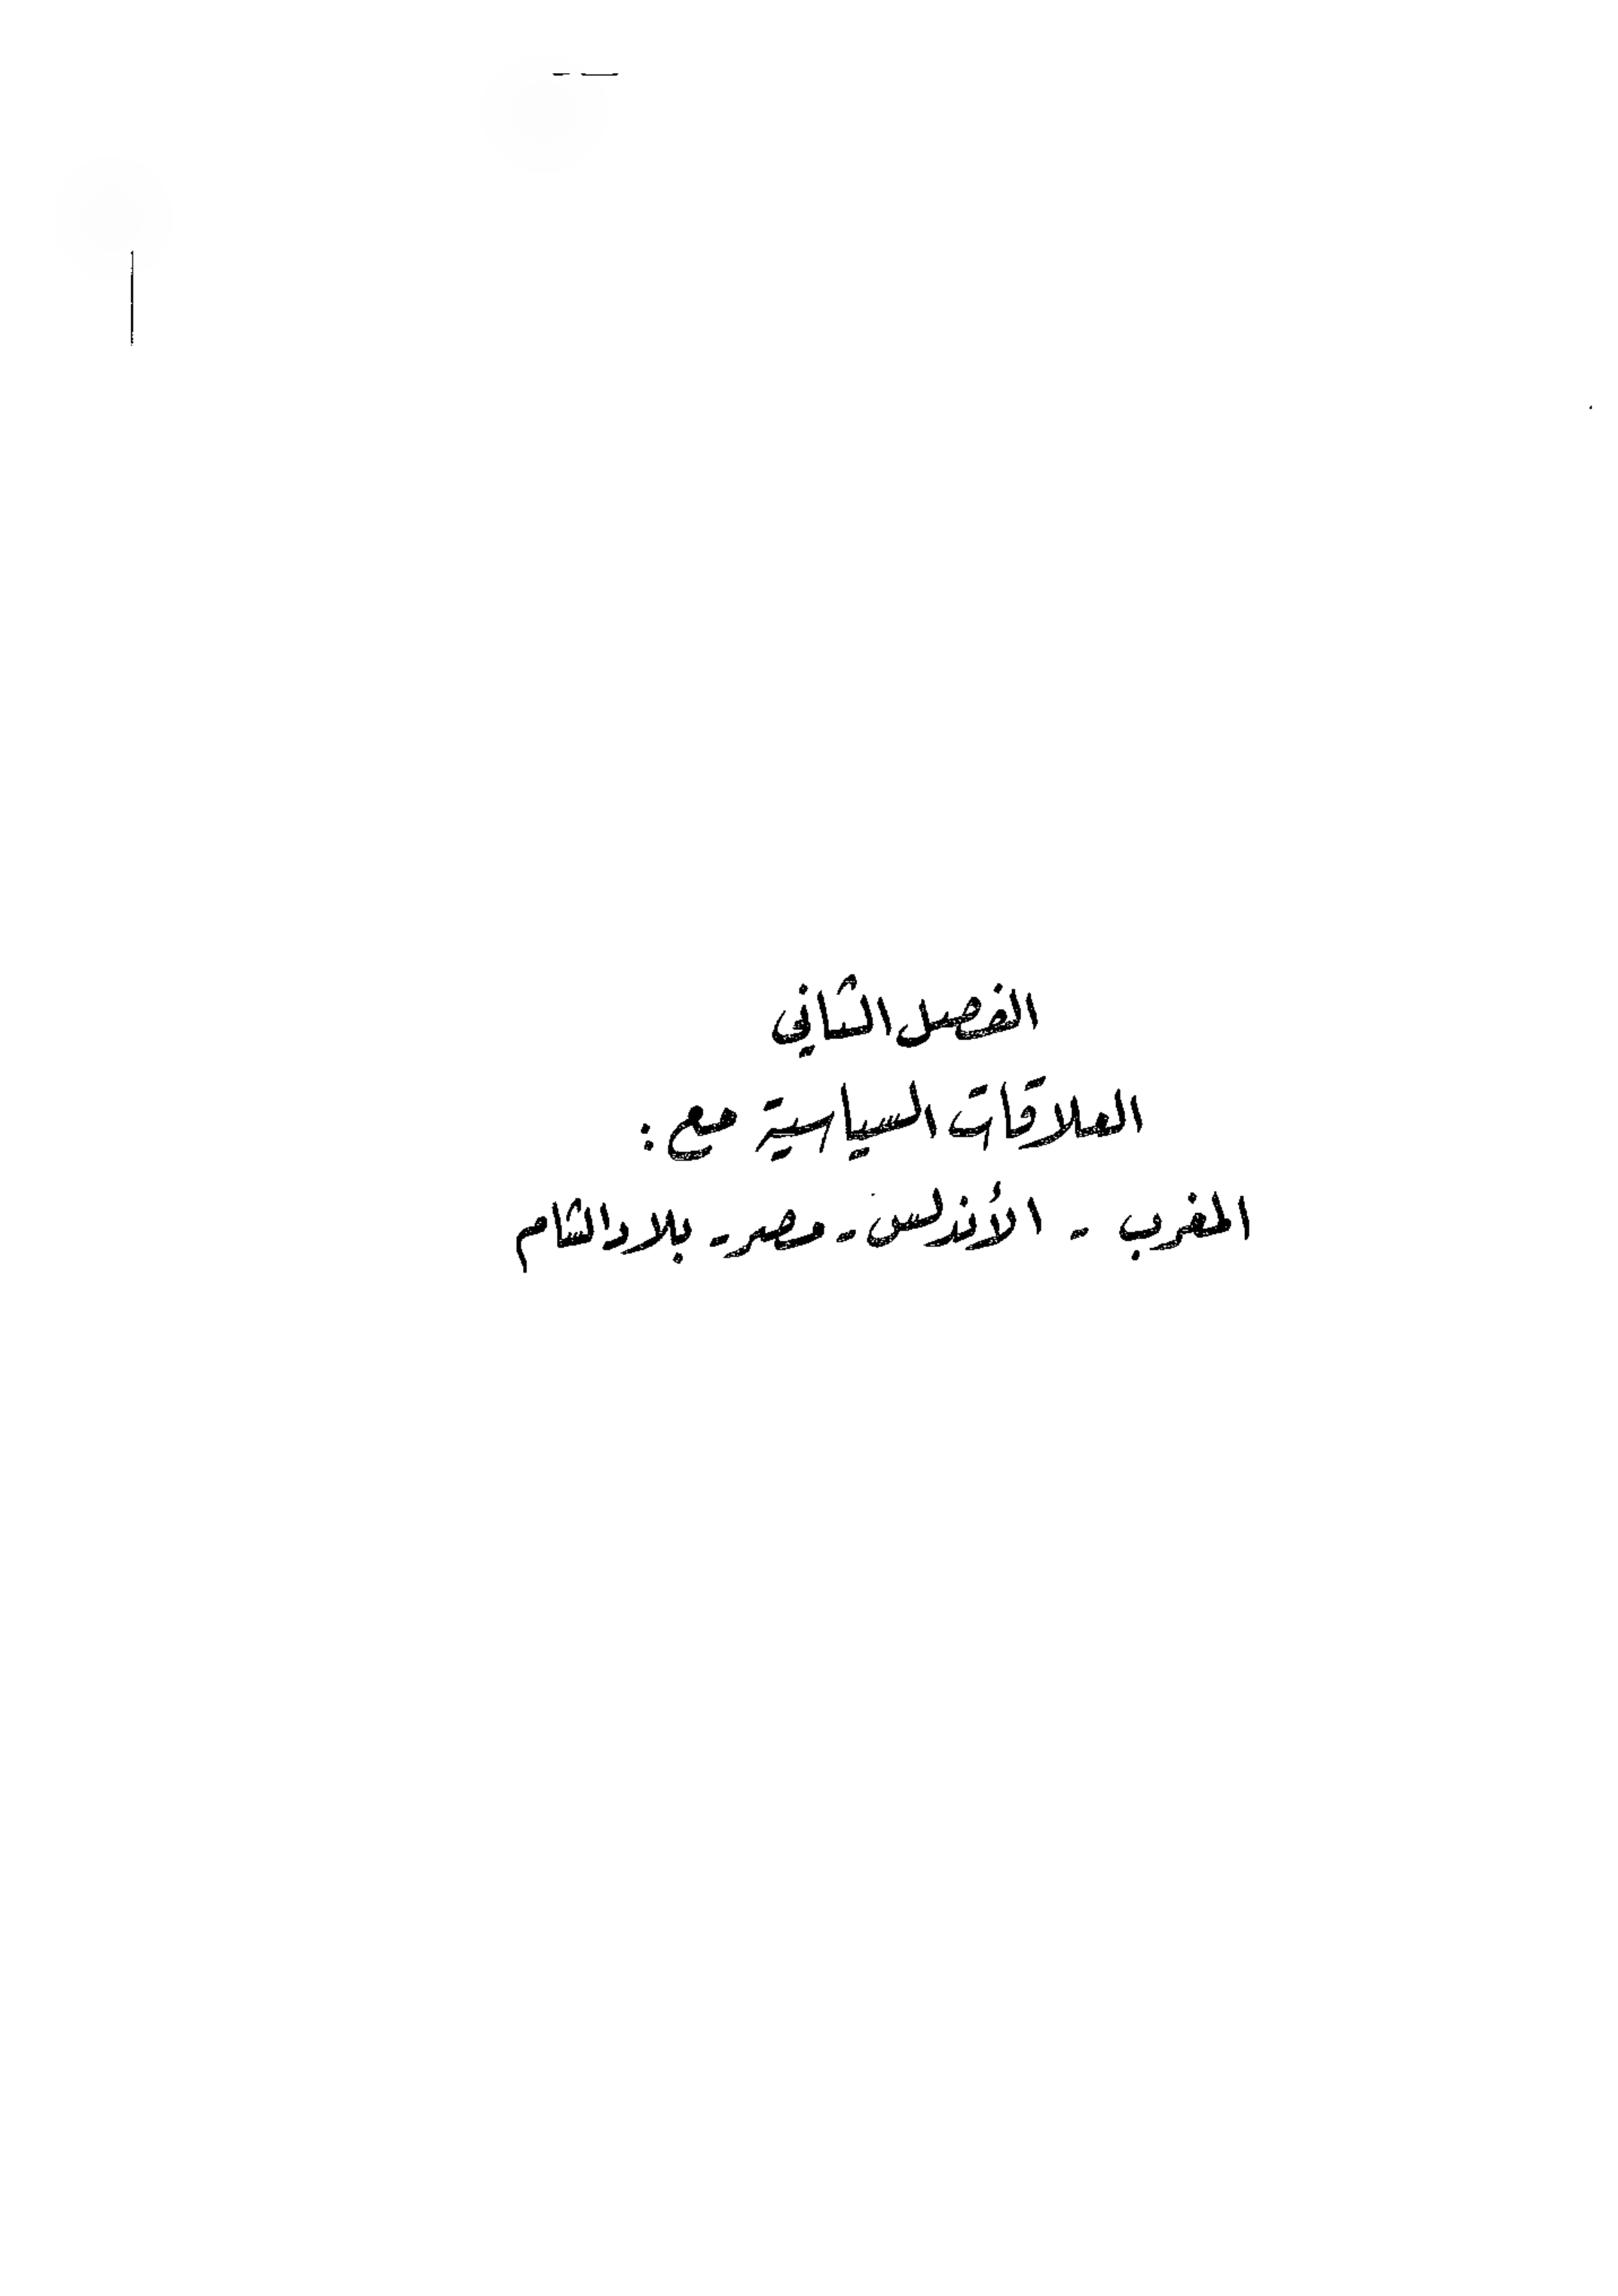 الفصل الثاني
العلاقات السياسية مع :
المغرب - الأندلس - مصر - بلاد الشام